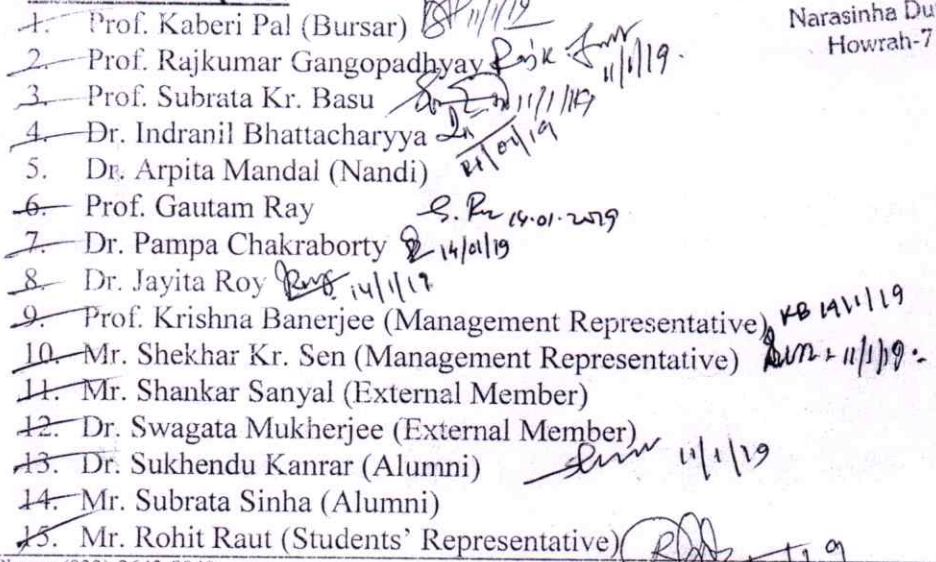 Narasinha Du
Howrah-7
1. Prof. Kaberi Pal (Bursar) 11/1/19
2. Prof. Rajkumar Gangopadhyay 11/1/19.
3. Prof. Subrata Kr. Basu 11/1/19
4. Dr. Indranil Bhattacharyya
5. Dr. Arpita Mandal (Nandi)
6. Prof. Gautam Ray 14.01.2019
7. Dr. Pampa Chakraborty 14/01/19
8. Dr. Jayita Roy 14/1/19
9. Prof. Krishna Banerjee (Management Representative) KB
10. Mr. Shekhar Kr. Sen (Management Representative) 11/1/19
11. Mr. Shankar Sanyal (External Member)
12. Dr. Swagata Mukherjee (External Member)
13. Dr. Sukhendu Kanrar (Alumni) 11/1/19
14. Mr. Subrata Sinha (Alumni)
15. Mr. Rohit Raut (Students' Representative)